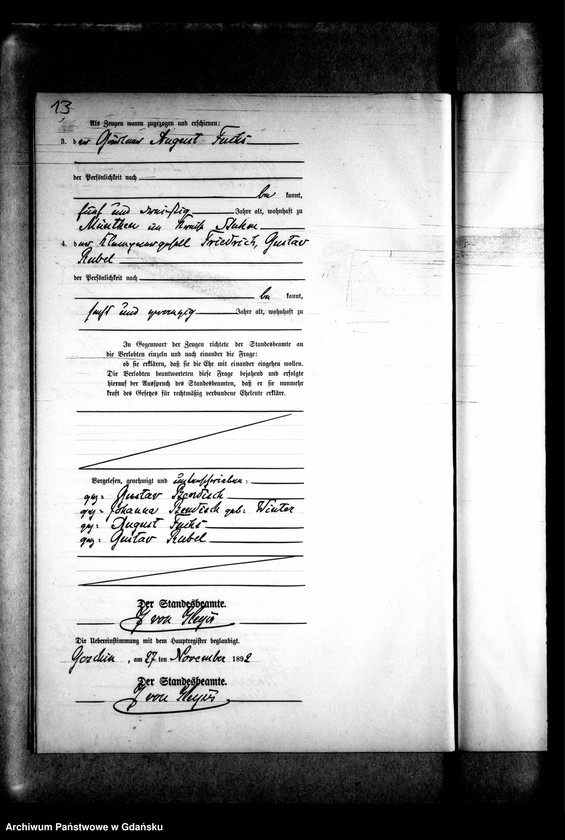 13
Als Zeugen waren zugezogen und erschienen:
3. der August Fuchs
der Persönlichkeit nach
be kannt,
fünf und dreißig Jahre alt, wohnhaft zu
im Kreise Stuhm
4. der Friedrich, Gustav
Rubel
der Persönlichkeit nach
be kannt,
sechs und zwanzig Jahre alt, wohnhaft zu
In Gegenwart der Zeugen richtete der Standesbeamte an
die Verlobten einzeln und nach einander die Frage:
ob sie erklären, daß sie die Ehe mit einander eingehen wollen.
Die Verlobten beantworteten diese Frage bejahend und erfolgte
hierauf der Ausspruch des Standesbeamten, daß er sie nunmehr
kraft des Gesetzes für rechtmäßig verbundene Eheleute erkläre.
Vorgelesen, genehmigt und unterschrieben:
gez: Gustav
gez: Johanna geb: Winter
gez: August Fuchs
gez: Gustav Rubel
Der Standesbeamte.
von
Die Uebereinstimmung mit dem Hauptregister beglaubigt.
, am 27 ten November 1892
Der Standesbeamte.
von
Archiwum Państwowe w Gdańsku